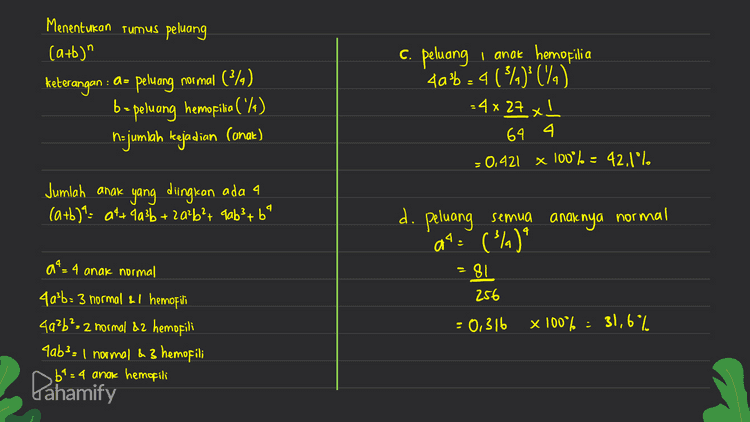 Menentukan rumus peluang
(a+b)ⁿ
keterangan : a = peluang normal (3/4)
b = peluang hemofilia (1/4)
n = jumlah kejadian (anak)
Jumlah anak yang diingkan ada 4
(a+b)⁴ = a⁴ + 4a³b + 2a²b² + 4ab³ + b⁴
a⁴ = 4 anak normal
4a³b = 3 normal & 1 hemofili
4a²b² = 2 normal & 2 hemofili
4ab³ = 1 normal & 3 hemofili
b⁴ = 4 anak hemofili
Pahamify
c. peluang 1 anak hemofilia
4a³b = 4 (3/4)³ (1/4)
= 4 x 27 x 1
64 4
= 0,421 x 100% = 42,1%
d. peluang semua anaknya normal
a⁴ = (3/4)⁴
= 81
256
= 0,316 x 100% = 31,6%